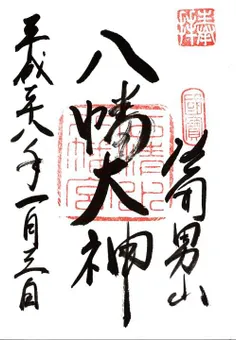 奉拝
國寶
男山
八幡大神
石清水八幡宮
平成二十八年一月三日